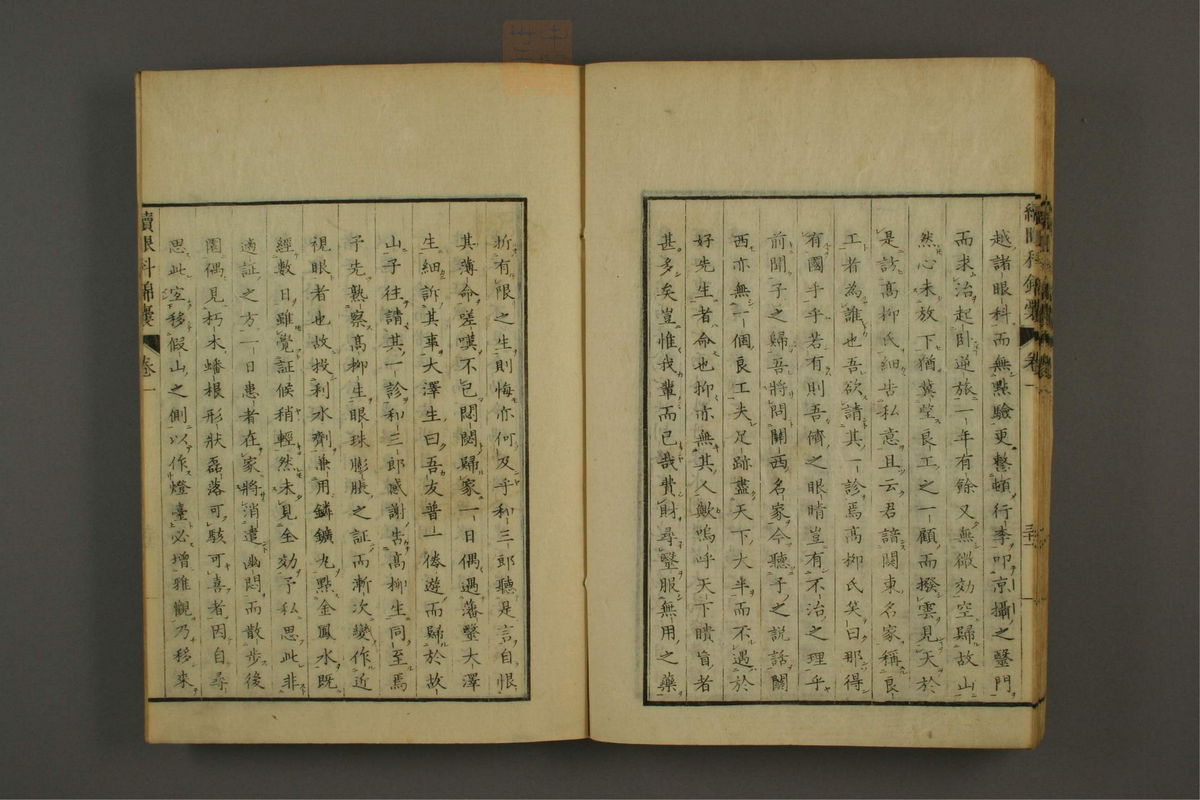 越諸眼科而無點驗更整頓行李叩京攝之醫門
而求治起臥逆旅一年有餘又無微効空歸故山
然心未放下猶冀望良工之一顧而撥雲見天於
是訪髙柳氏細告私意且云君諳関東名家稱良
工者為誰也吾欲請其一診焉髙柳氏笑曰那得
有國手乎若有則吾儕之眼睛豈有不治之理乎
前聞子之歸吾將問關西名家今聽子之説話關
西亦無一個良工夫足跡盡天下大半而不遇於
好先生者命也抑亦無其人歟嗚呼天下瞶盲者
甚多矣豈惟我輩而已哉費財尋醫服無用之藥
折有限之生則悔亦何及乎和三郎聽是言自恨
其薄命嗟嘆不已悶悶歸家一日偶遇藩醫大澤
生細訴其事大澤生曰吾友普一倦遊而歸於故
山子往請其一診和三郎感謝告髙柳生同至焉
予先熟察髙柳生眼珠膨脹之証而漸次變作近
視眼者也故投利水劑兼用鏻鑛丸點金鳳水既
經數日雖覺証候稍輕然未見全効予私思此非
適証之方一日患者在家將消遣幽悶而散歩後
園偶見朽木蟠根形狀磊落可駭可喜者因自尋
思此宜移假山之側以作燈臺必增雅觀乃移來
續眼科錦囊
卷一